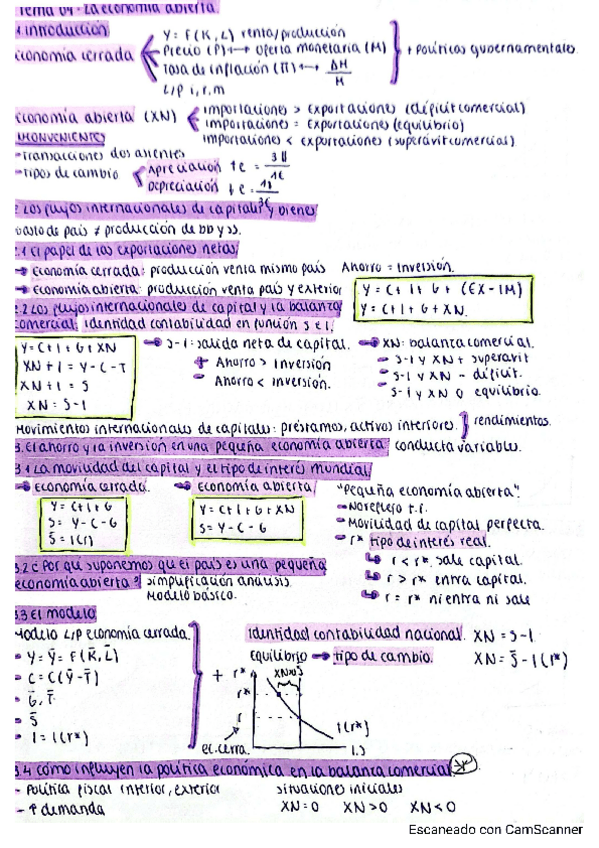 Tema 04 - La economía abierta.
1. Introducción
economía cerrada
Y = F(K, L) renta/producción
Precio (P) ↔ oferta monetaria (M)
Tasa de inflación (π) ↔ ΔM/M
L/P i, r, π
+ políticas gubernamentales.
economía abierta (XN)
importaciones > exportaciones (déficit comercial)
importaciones = exportaciones (equilibrio)
importaciones < exportaciones (superávit comercial)
INCONVENIENTES
- Transacciones dos agentes
- Tipos de cambio
Apreciación ↑e =
Depreciación ↓e =
2. Los flujos internacionales de capitales y bienes
Gasto de país ≠ producción de bb y ss.
2.1 El papel de las exportaciones netas
→ Economía cerrada: producción venta mismo país Ahorro = Inversión.
→ Economía abierta: producción venta país y exterior
Y = C + I + G + (EX - IM)
Y = C + I + G + XN.
2.2 Los flujos internacionales de capital y la balanza
comercial: identidad contabilidad en función S e I.
Y = C + I + G + XN
XN + I = Y - C - G
XN + I = S
XN = S - I
→ S - I: salida neta de capital.
+ Ahorro > inversión
- Ahorro < inversión.
→ XN: balanza comercial.
- S-I y XN + superávit
- S-I y XN - déficit.
- S-I y XN 0 equilibrio.
Movimientos internacionales de capitales: préstamos, activos interiores. } rendimientos.
3. El ahorro y la inversión en una pequeña economía abierta conducta variables.
3.1 La movilidad del capital y el tipo de interés mundial
→ Economía cerrada.
Y = C + I + G
S = Y - C - G
S = I(r)
→ Economía abierta
Y = C + I + G + XN
S = Y - C - G
"Pequeña economía abierta".
- Movilidad de capital perfecta.
- r* tipo de interés real.
r < r* sale capital.
r > r* entra capital.
r = r* ni entra ni sale
3.2 ¿Por qué suponemos que el país es una pequeña
economía abierta? simplificación análisis.
Modelo básico.
3.3 El modelo
Modelo L/P economía cerrada.
- Y = Ȳ = F(K̄, L̄)
- C = C(Ȳ - T̄)
- Ḡ, T̄
- S̄
- I = I(r*)
+
Identidad contabilidad nacional. XN = S - I
Equilibrio → tipo de cambio. XN = S̄ - I(r*)
r*
XN>0
S
r*
r
ec. cerra.
I(r*)
I, S
3.4 Cómo influyen la política económica en la balanza comercial *
- Política fiscal interior, exterior
- ↑ demanda
situaciones iniciales
XN = 0 XN > 0 XN < 0
Escaneado con CamScanner